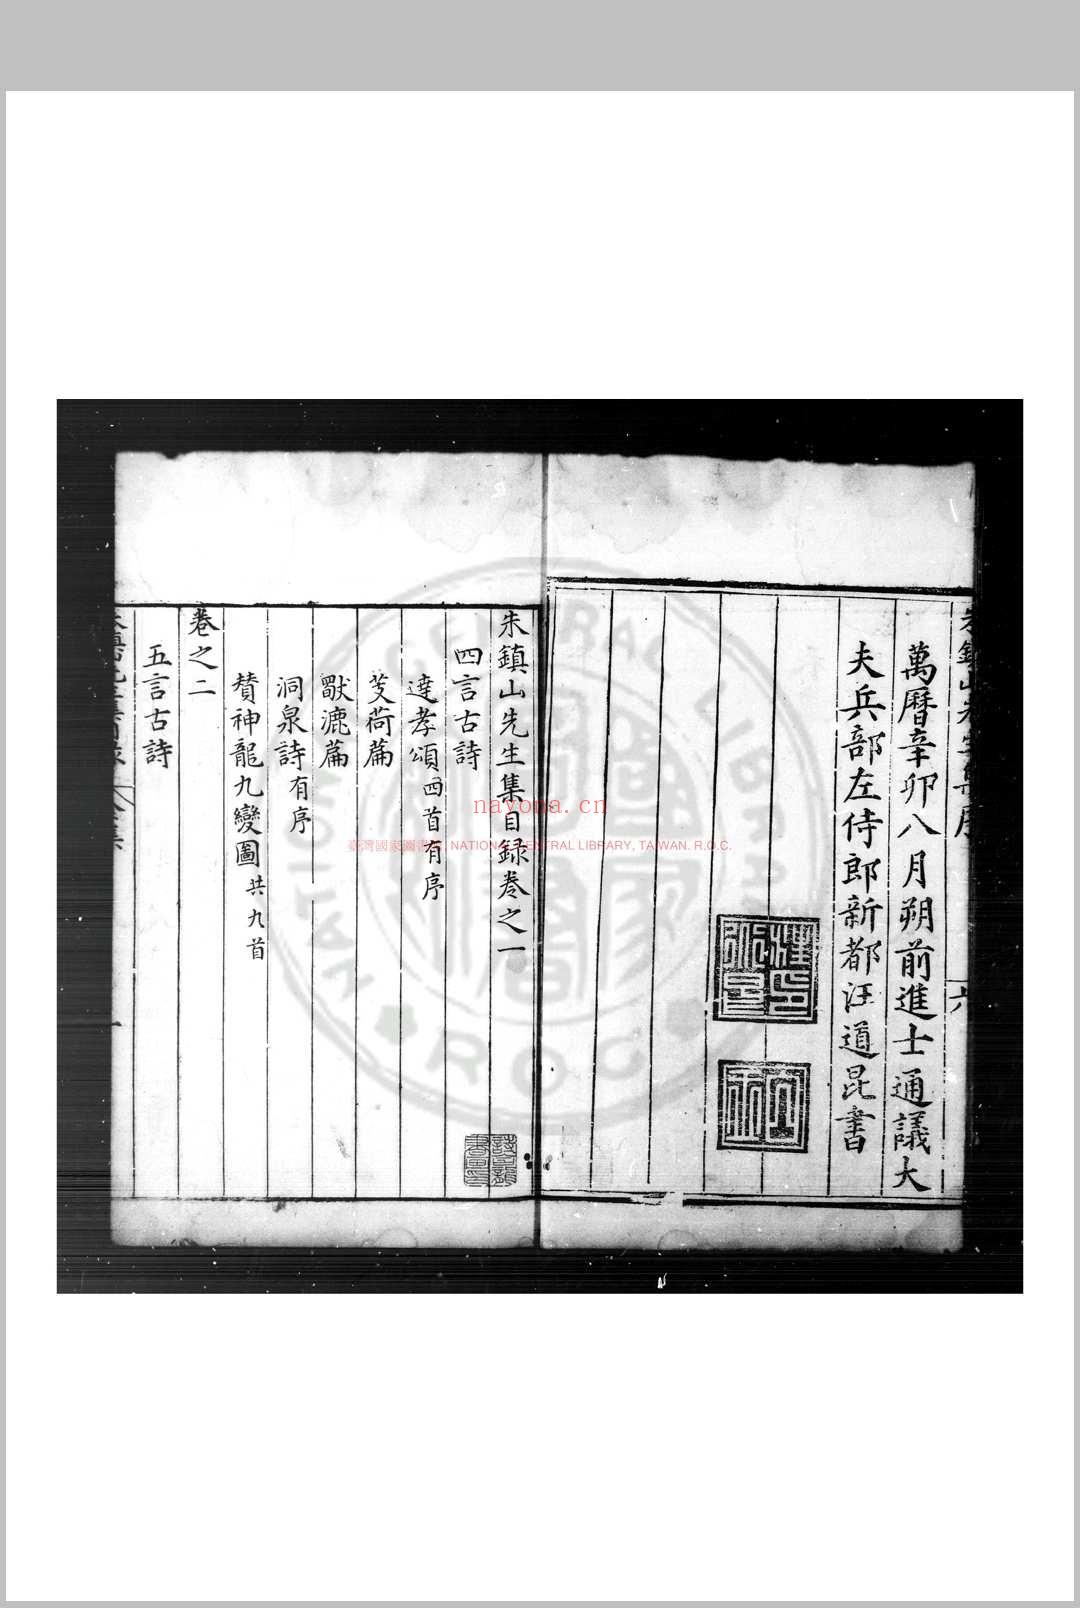 萬曆辛卯八月朔前進士通議大
夫兵部左侍郎新都汪道昆書
六
朱鎮山先生集目録卷之一
四言古詩
達孝頌四首有序
芰荷篇
歠漉篇
洞泉詩有序
賛神龍九變圖共九首
卷之二
五言古詩
一
nayona.cn
臺灣國家圖書館 NATIONAL CENTRAL LIBRARY, TAIWAN. R.O.C.
NATIONAL CENTRAL LIBRARY
R.O.C